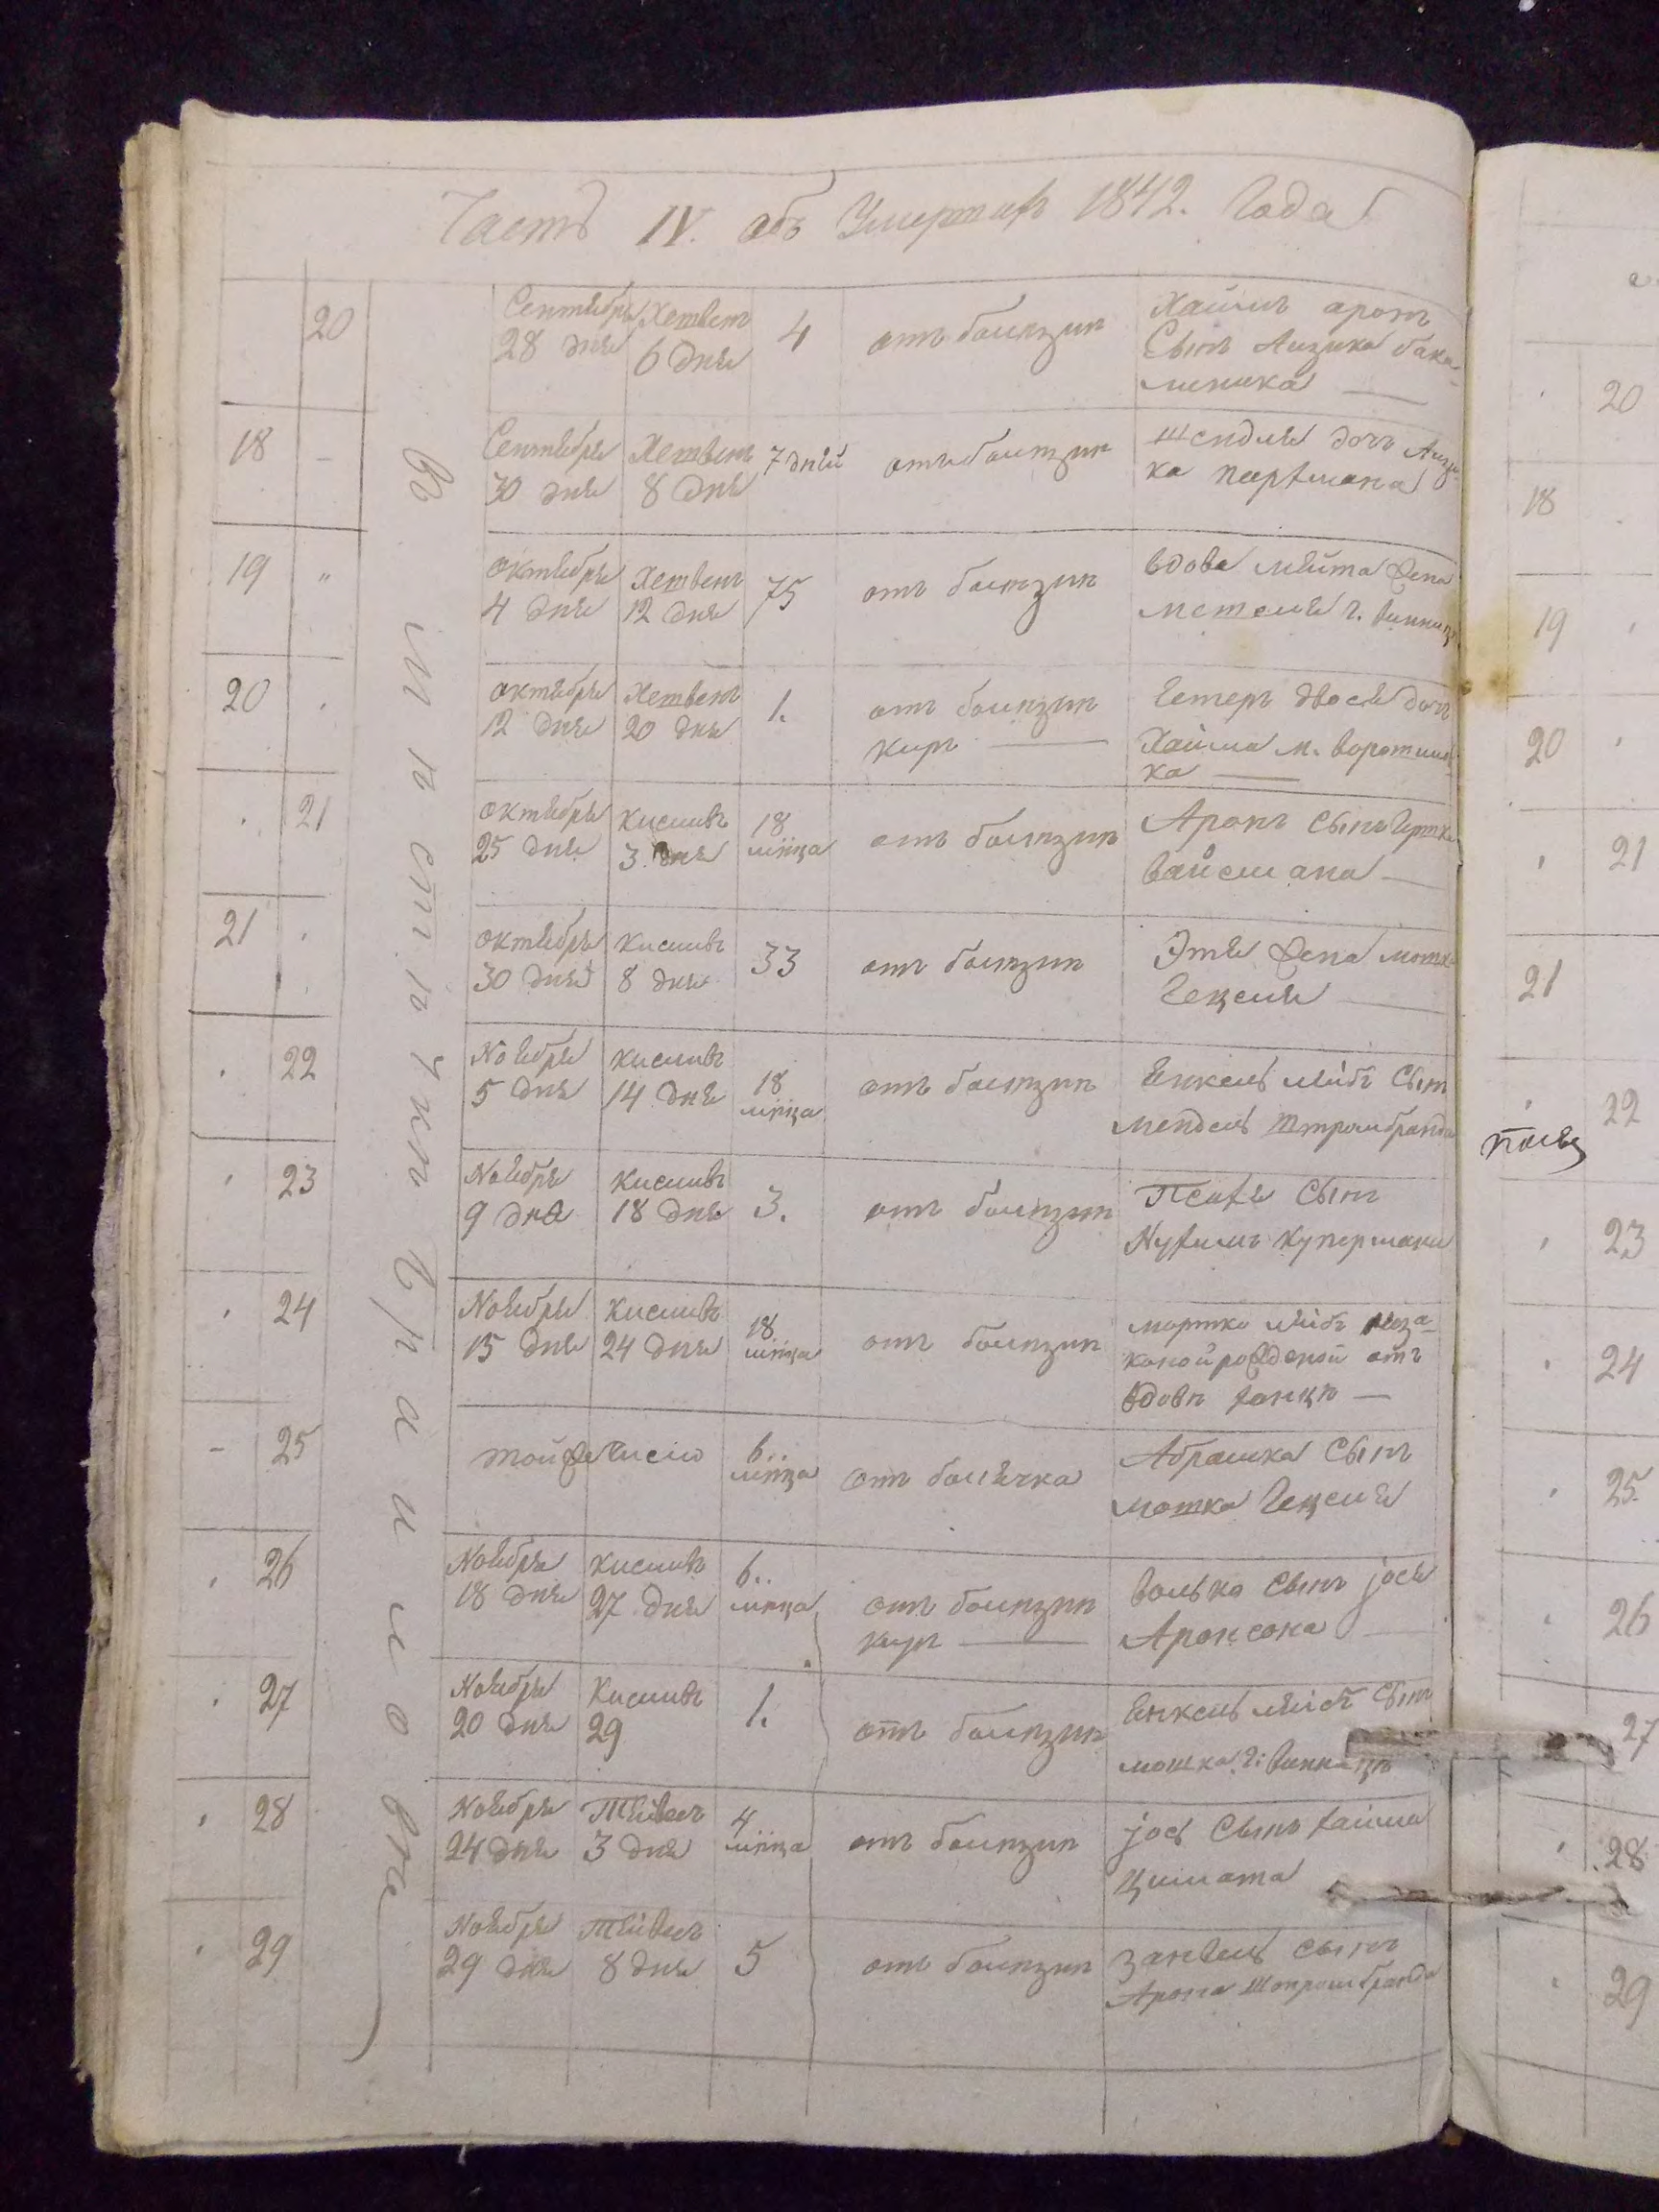 Часть IV. объ Умершихъ 1842. Года
20
Сентября 28 дня
Хешвенъ 6 дня
4
отъ болѣзни
Хаимъ аронъ
Сынъ Аизика бака-
лѣника
18 –
Сентября 30 дня
Хешвенъ 8 дня
7 дней
отъ болѣзни
Шендля дочъ Аизи-
ка
19 "
Октября 4 дня
Хешвенъ 12 дня
75
отъ болѣзни
вдова
г. Винница
20
Октября 12 дня
Хешвенъ 20 дня
1.
отъ болѣзни
кирь
Естеръ двося дочъ
Хаима м. Воротилов-
ка
21
Октября 25 дня
Кисливъ 3. дня
18 мѣца
отъ болѣзни
Аронъ Сынъ Гершка
Вайсмана
21
Октября 30 дня
Кисливъ 8 дня
33
отъ болѣзни
Этя жена мошка
Гецеля
22
Ноября 5 дня
Кисливъ 14 дня
18 мѣца
отъ болѣзни
Янкель лейбъ Сынъ
мендель Штромбранда
23
Ноября 9 дня
Кисливъ 18 дня
3.
отъ болѣзни
Песахя Сынъ
Нухимъ Купермана
24
Ноября 15 дня
Кисливъ 24 дня
18 мѣца
отъ болѣзни
мортко лейбъ неза-
коной рожденой отъ
вдовы ханцы
– 25
той же число
6.. мѣца
отъ болячка
Абрамка Сынъ
мошка Гецеля
26
Ноября 18 дня
Кисливъ 27 дня
6.. мѣца
отъ болѣзни
кирь
Волько Сынъ Јося
Аронсона
27
Ноября 20 дня
Кисливъ 29
1.
отъ болѣзни
Янкель лейбъ Сынъ
мошка г: Винницы
28
Ноября 24 дня
Тѣйвесъ 3 дня
4 мѣца
отъ болѣзни
Јось Сынъ хаима
29
Ноября 29 дня
Тѣйвесъ 8 дня
5
отъ болѣзни
Занвель Сынъ
Арона Штромбранда
В
мѣстѣчкѣ
Браилово
20
18
19
20
21
21
22
23
24
25
26
27
28
29